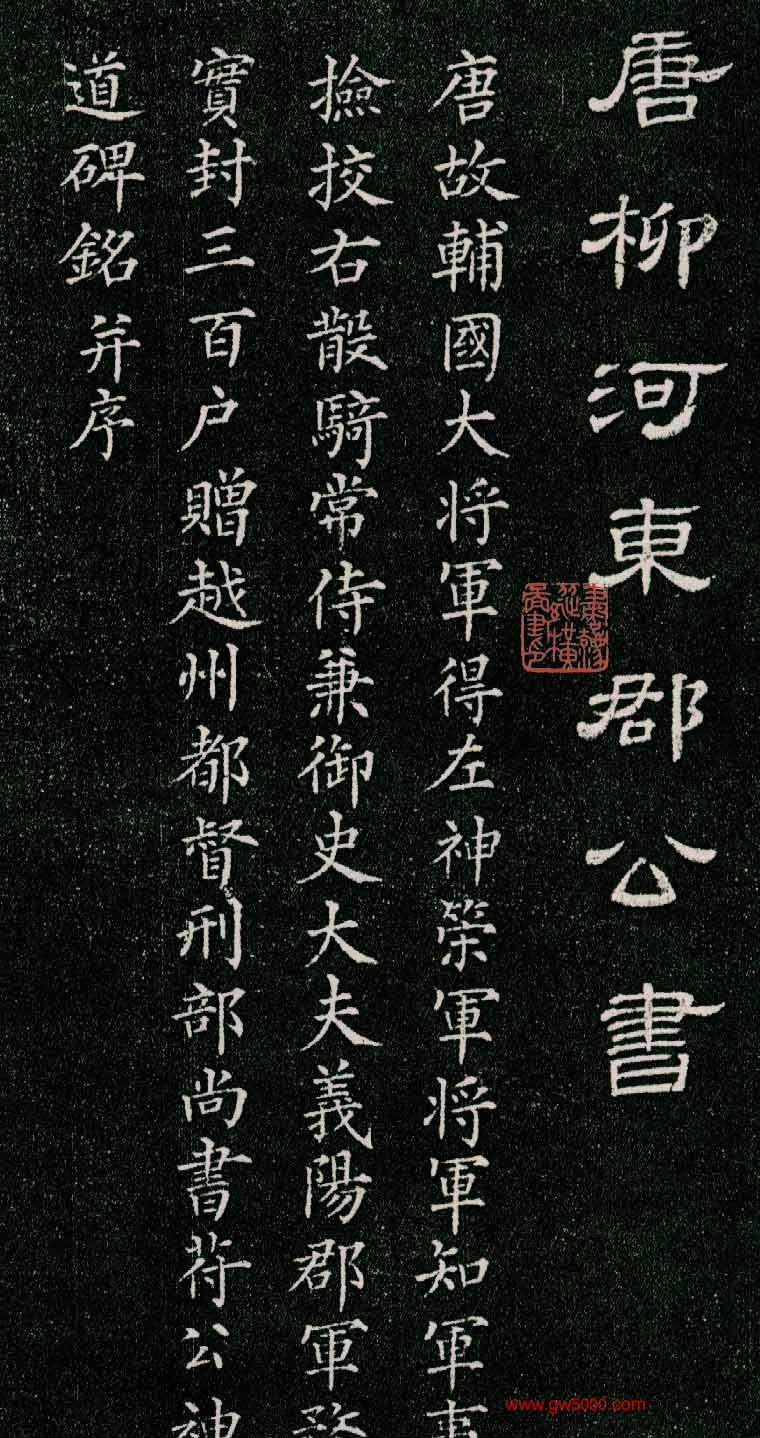 唐柳河東郡公書
唐故輔國大将軍得左神筞軍将軍知軍事
撿挍右散騎常侍兼御史大夫義陽郡軍
實封三百户贈越州都督刑部尚書苻公神
道碑銘并序
www.gw5000.com